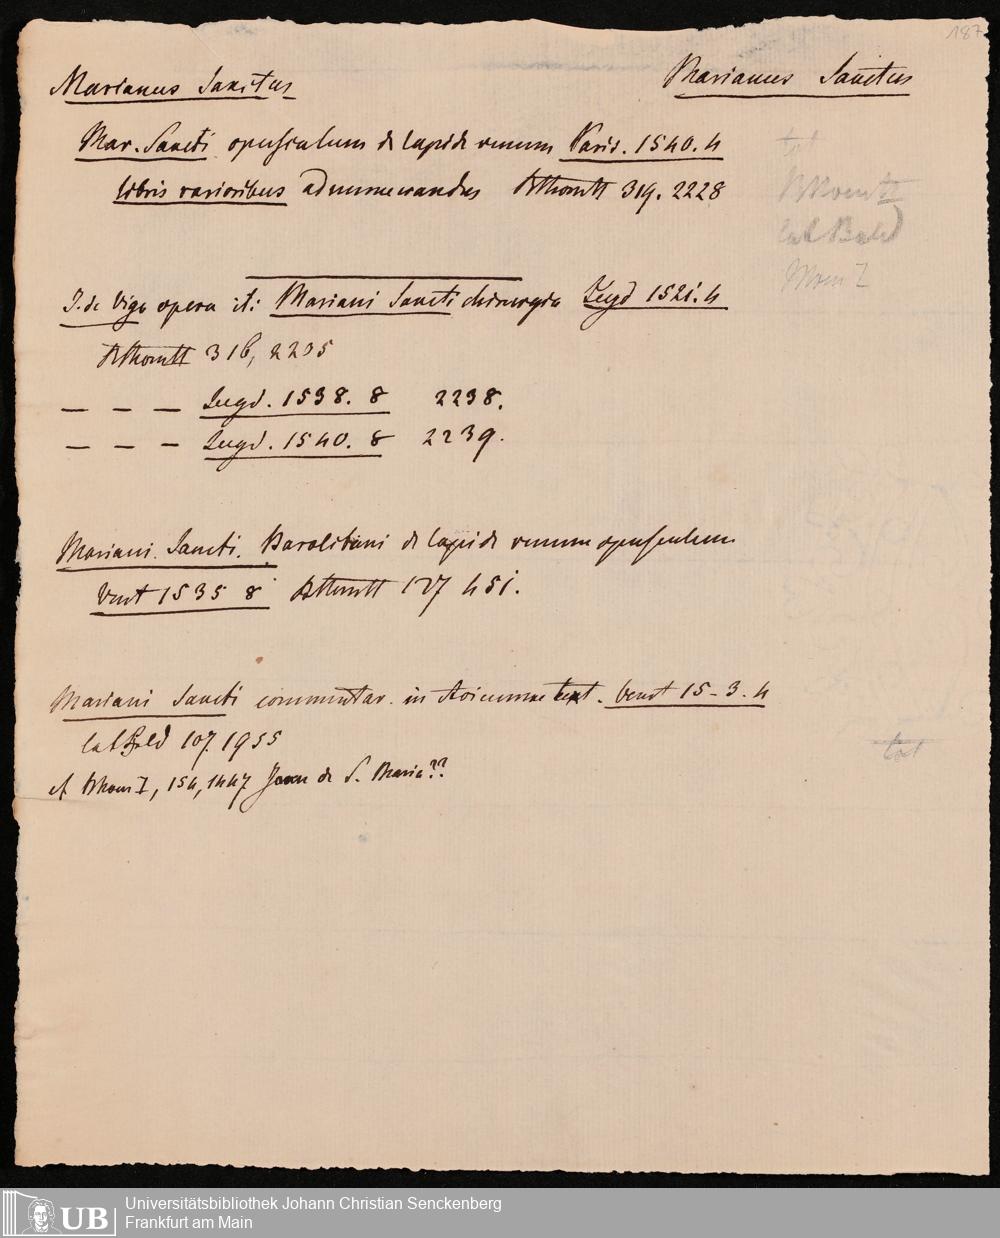 187
Marianus Sanctus
Marianus Sanctus
Mar. Sancti opusculum de lapide renum Paris. 1540. 4
libris rarioribus adnumerandus BRhomtt 319. 2228
tot
lat Bald
I. de Vigo opera it: Mariani Sancti chirurgia Lugd 1521. 4
BRhomtt 316, 2205
— — — Lugd. 1538. 8 2238.
— — — Lugd. 1540. 8 2239.
Mariani Sancti. Barolitani de lapide renum opusculum
Venet 1535 8 127 451.
Mariani Sancti commentar. in Avicennae text. Venet 15-3. 4
lat Bald 107. 1955
tot
cf I, 154, 1447 Joann de S. Maria??
Universitätsbibliothek Johann Christian Senckenberg
Frankfurt am Main
UB